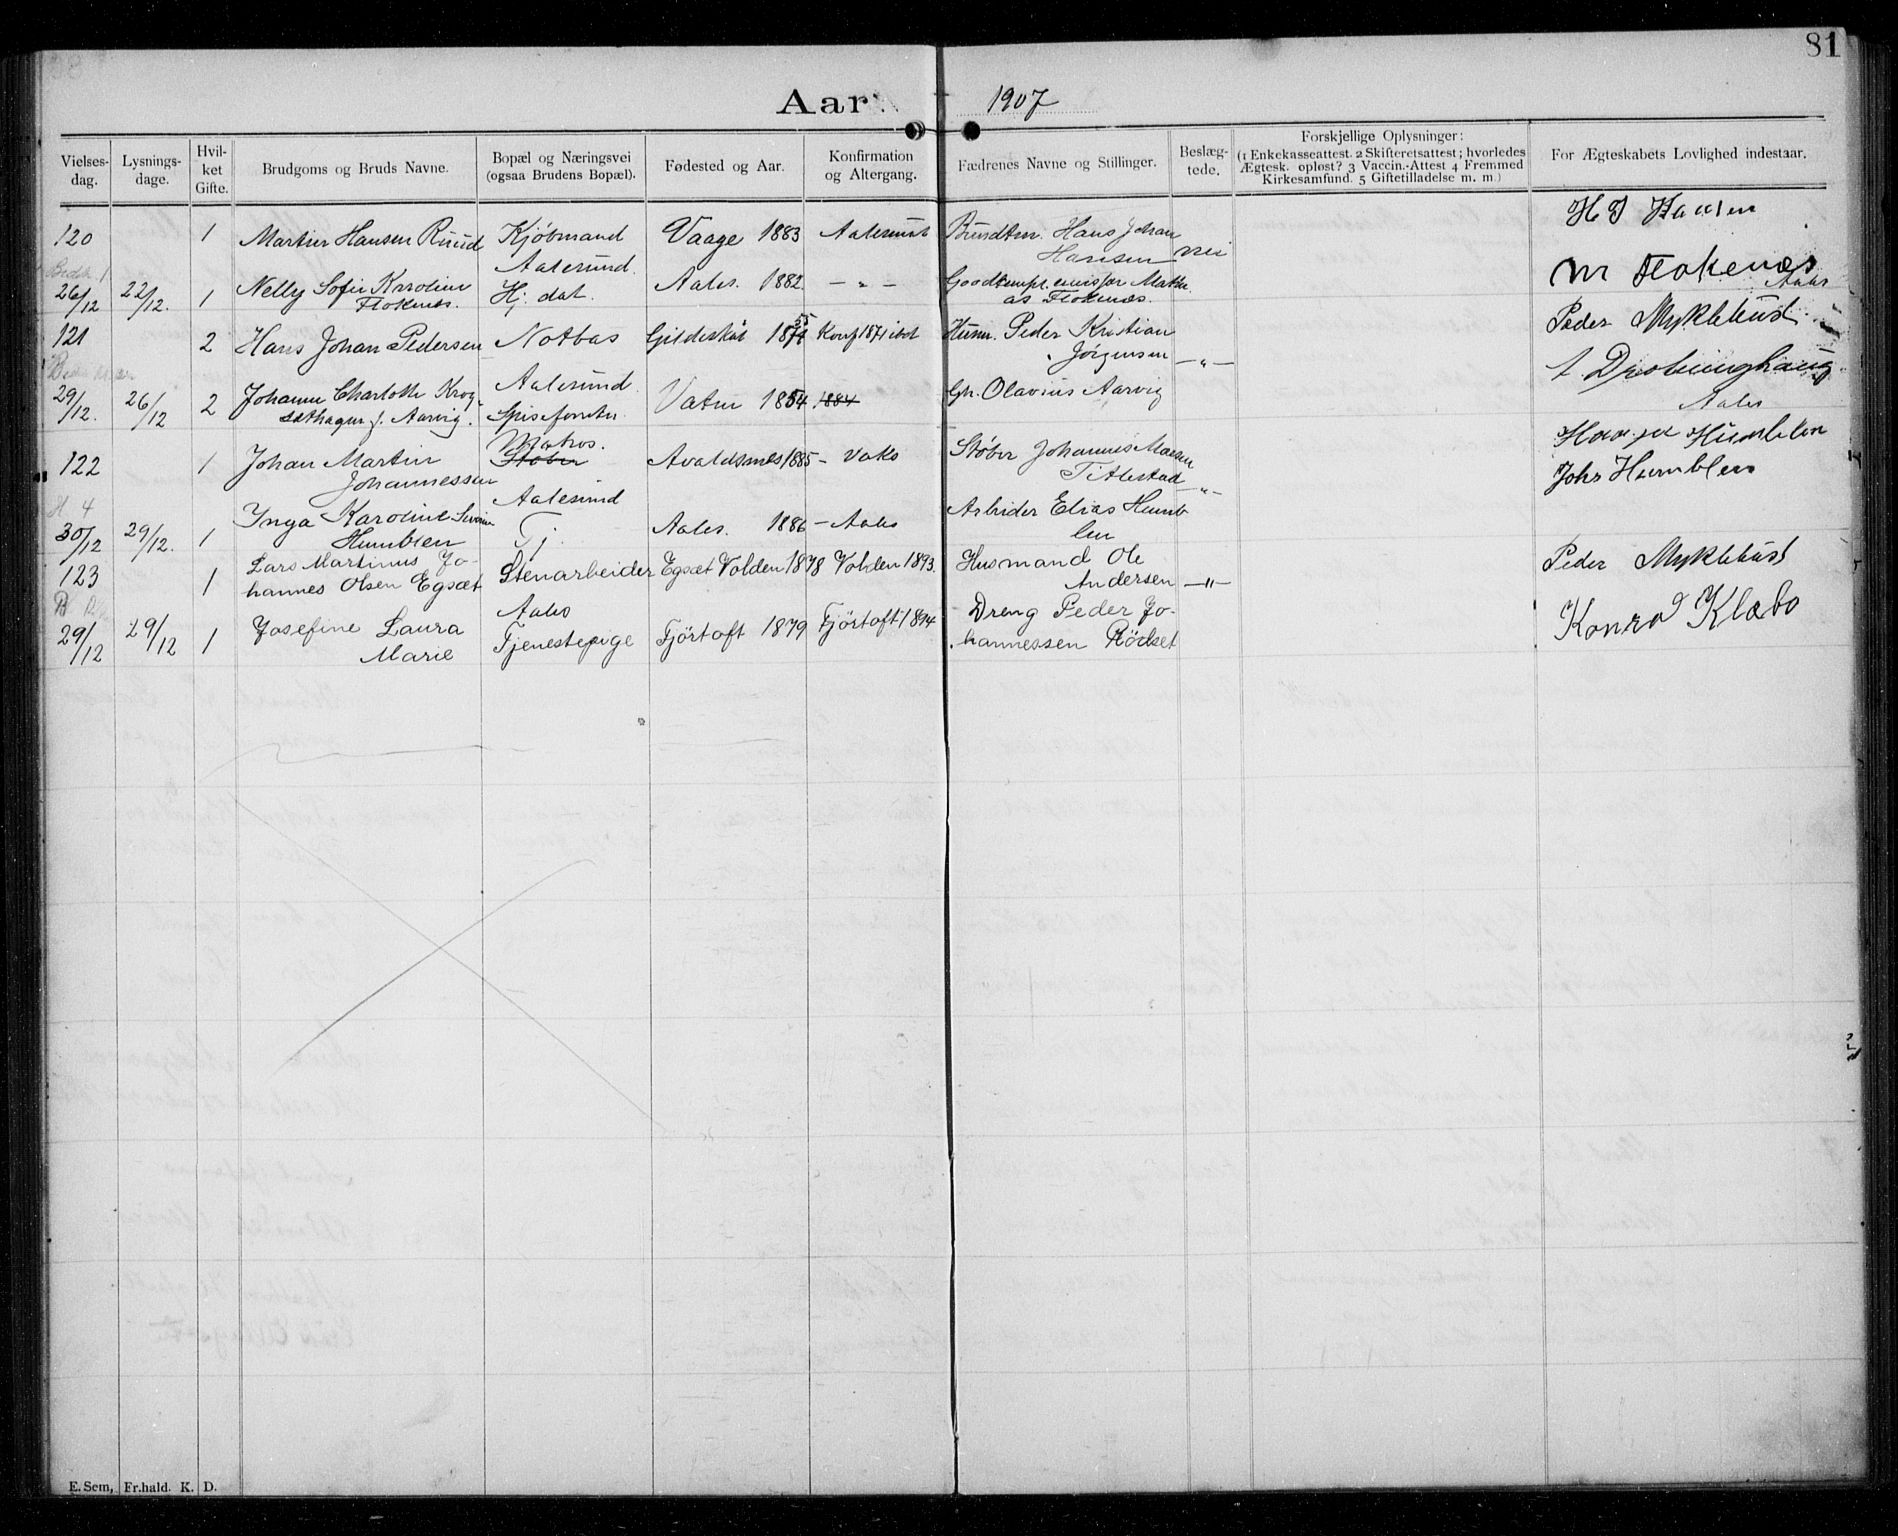 81
Aar 1907
Vielses-dag. Lysnings-dage. Hvil-ket Gifte. Brudgoms og Bruds Navne. Bopæl og Næringsvei (ogsaa Brudens Bopæl). Fødested og Aar. Konfirmation og Altergang. Fædrenes Navne og Stillinger. Beslæg-tede. Forskjellige Oplysninger: (1 Enkekasseattest. 2 Skifteretsattest; hvorledes Ægtesk. opløst? 3 Vaccin.-Attest 4 Fremmed Kirkesamfund. 5 Giftetilladelse m. m.) For Ægteskabets Lovlighed indestaar.
120 1 Martin Hansen Ruud Kjøbmand Vaage 1883 Aalesund Hans Johan
Aalesund. Hansen nei
26/12 22/12. 1 Nelly Sofie Karoline Hj. dat. Aales. 1882 - " - Goodtempl. emissær
Flokenes. as Flokenæs. M Flokenæs Aales
121 2 Hans Johan Pedersen Notbas Gildeskål 1855 Konf 1871 ibd Husm. Peder Kristian Peder Myklebust
Jørgensen - " -
29/12. 26/12 2 Johanne Charlotte Krog- Aalesund Vatne 1854 1884 Gh. Olavius Aarvig
sæthagen f. Aarvig. Aales
122 1 Johan Martin Matros. Støber Avaldsnes 1885 - vaks Støber Johannes
Johannessen Titlestad - " -
Aalesund
30/12 29/12. 1 Inga Karoline Severine Tj. Aales. 1886 - Aales Arbeider Elias Humb
Humblen len Johs Humblen
123 1 Lars Martinus Jo- Stenarbeider Egsæt Volden 1878 Volden 1893. Husmand Ole Peder Myklebust
hannes Olsen Egsæt Andersen - " -
Aales
29/12 29/12 1 Josefine Laura Tjenestepige Fjörtoft 1879 Fjörtoft 1894 Dreng Peder Jo- Konrad Klæbo
Marie hannessen Rödset
E. Sem, Fr.hald. K. D.